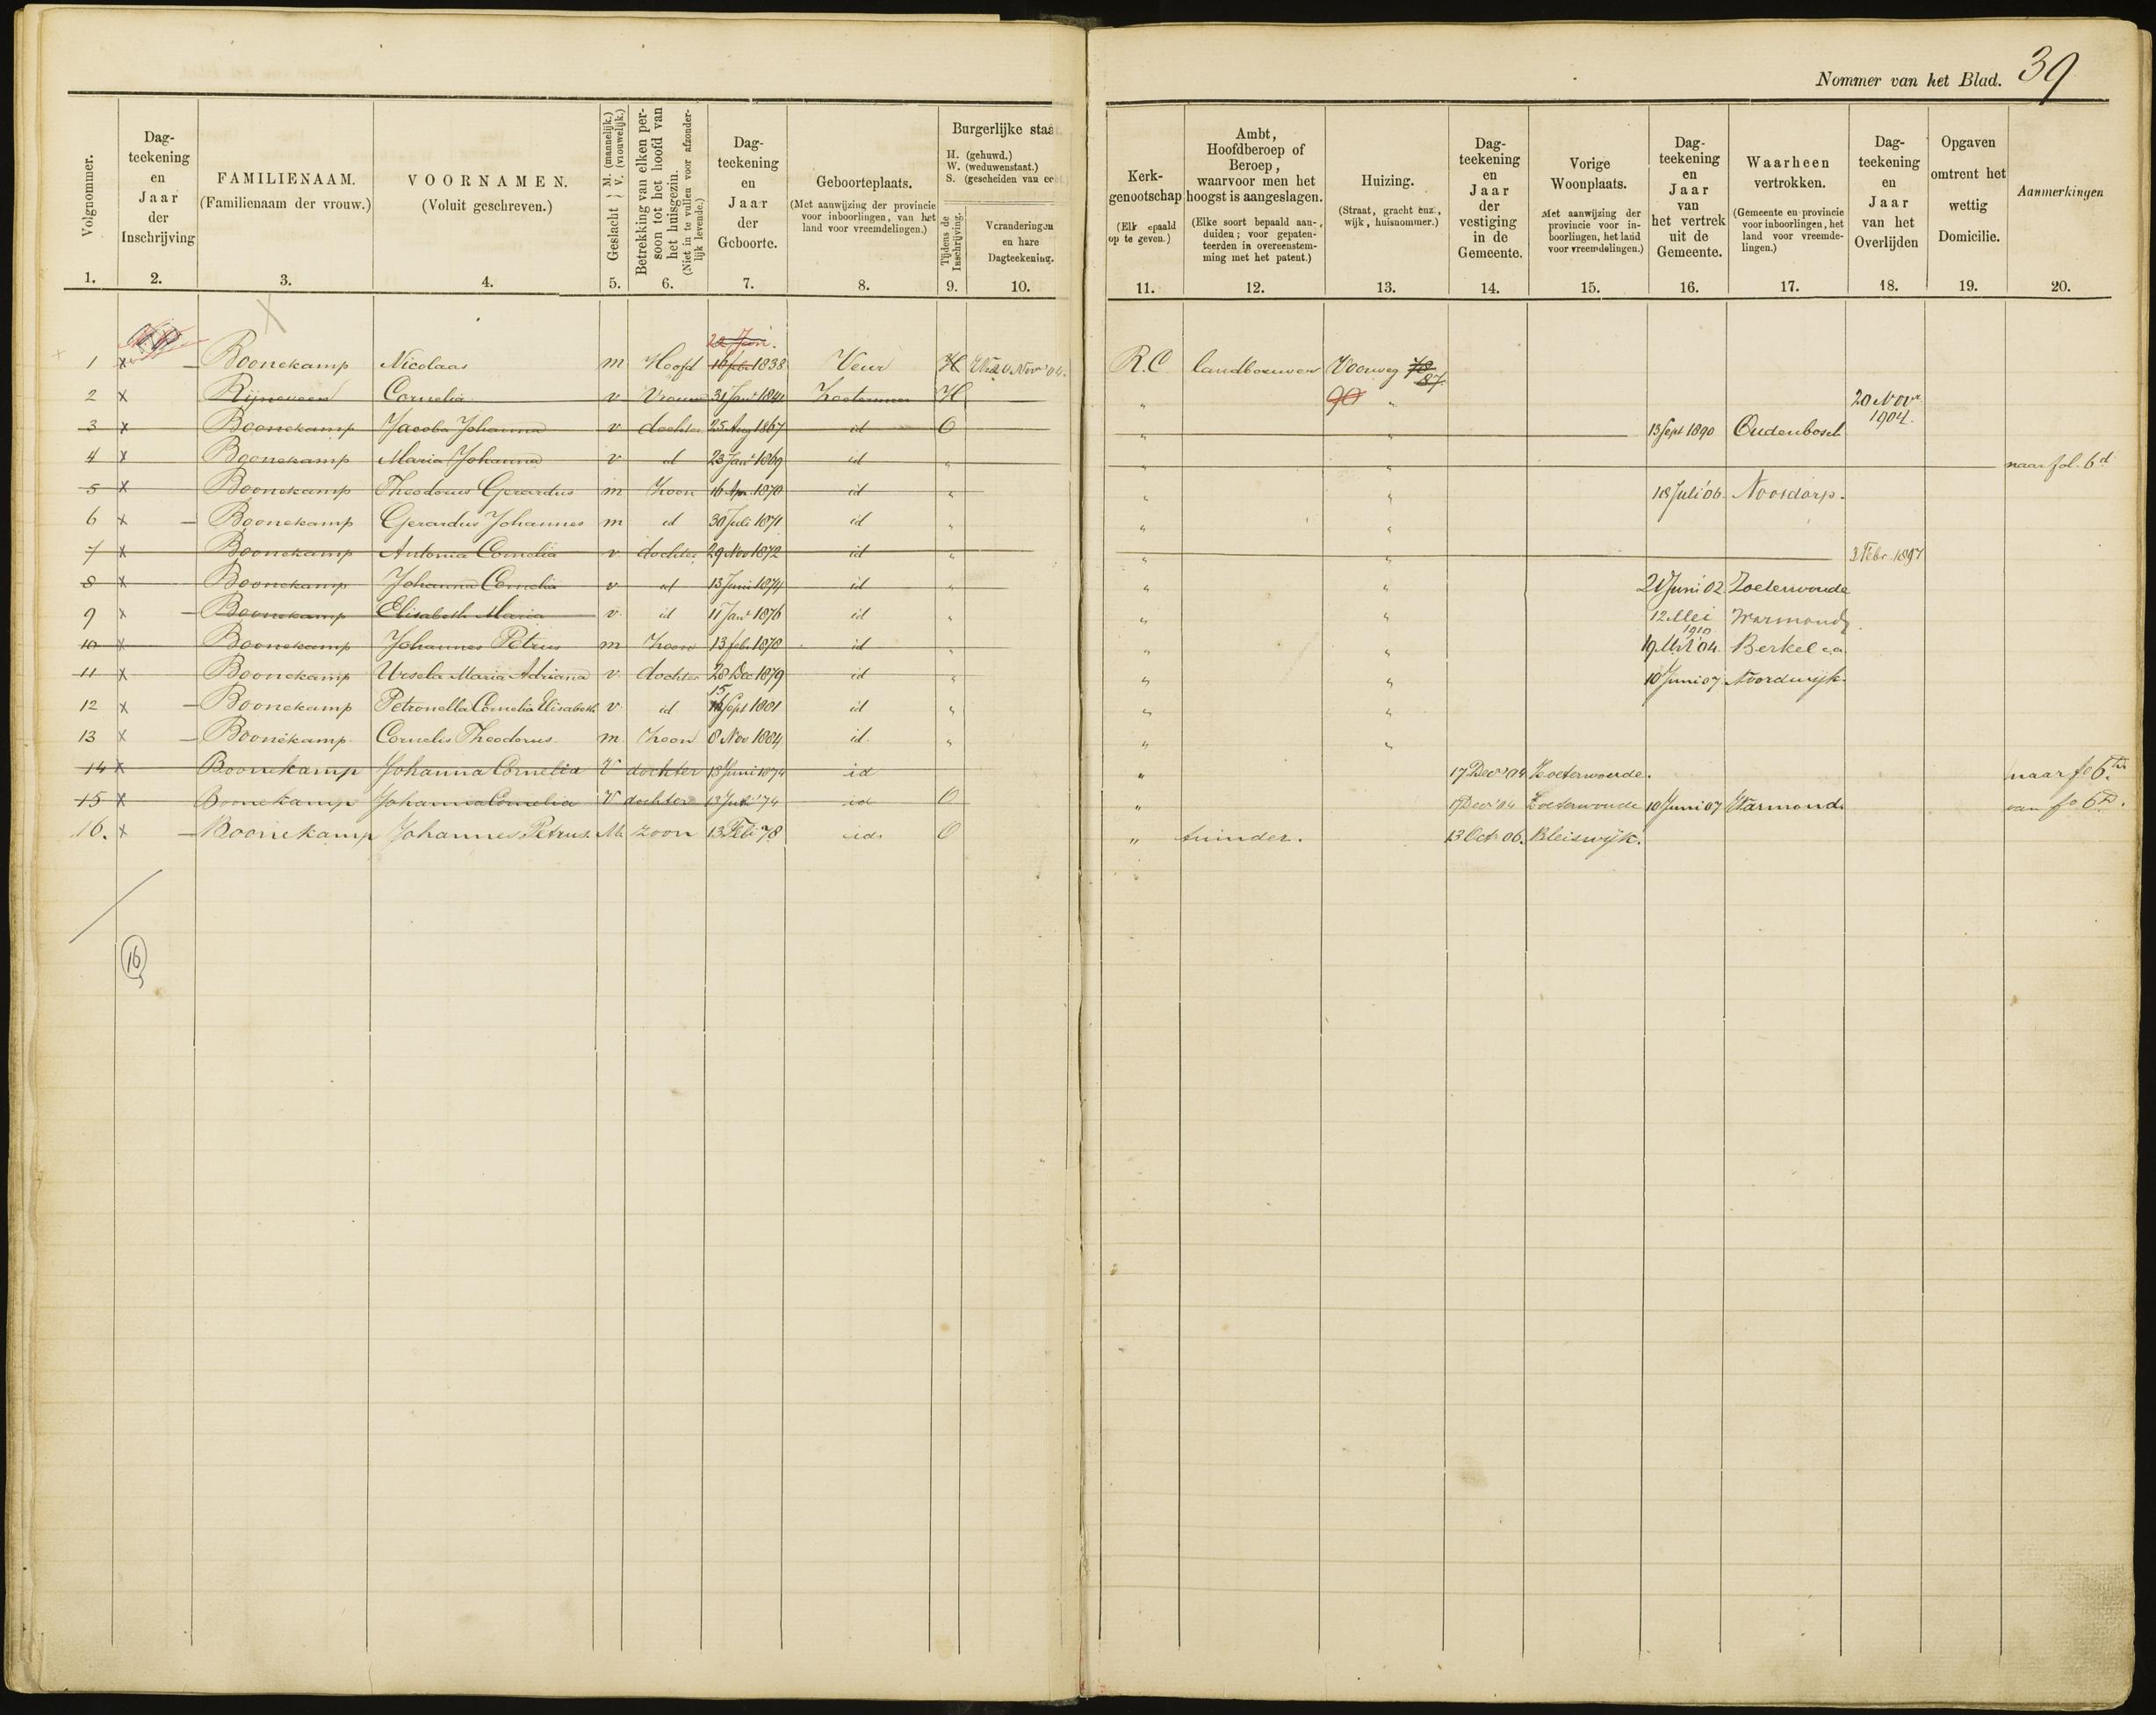 Nommer van het Blad. 39
Volgnommer. 1.
Dag-teekening en Jaar der Inschrijving 2.
FAMILIENAAM. (Familienaam der vrouw.) 3.
VOORNAMEN. (Voluit geschreven.) 4.
Geslacht M. (mannelijk.) V. (vrouwelijk.) 5.
Betrekking van elken persoon tot het hoofd van het huisgezin. (Niet in te vullen voor afzonderlijk levende.) 6.
Dag-teekening en Jaar der Geboorte. 7.
Geboorteplaats. (Met aanwijzing der provincie voor inboorlingen, van het land voor vreemdelingen.) 8.
Burgerlijke staat
H. (gehuwd.)
W. (weduwenstaat.)
S. (gescheiden van
Tijdens de Inschrijving. 9.
Veranderingen en hare Dagteekening. 10.
Kerk-genootschap (Elk bepaald op te geven.) 11.
Ambt, Hoofdberoep of Beroep, waarvoor men het hoogst is aangeslagen. (Elke soort bepaald aanduiden; voor gepatenteerden in overeenstemming met het patent.) 12.
Huizing. (Straat, gracht enz., wijk, huisnommer.) 13.
Dag-teekening en Jaar der vestiging in de Gemeente. 14.
Vorige Woonplaats. Met aanwijzing der provincie voor inboorlingen, het land voor vreemdelingen.) 15.
Dag-teekening en Jaar van het vertrek uit de Gemeente. 16.
Waarheen vertrokken. (Gemeente en provincie voor inboorlingen, het land voor vreemdelingen.) 17.
Dag-teekening en Jaar van het Overlijden 18.
Opgaven omtrent het wettig Domicilie. 19.
Aanmerkingen 20.
22 Jan.
1 x Boonekamp Nicolaas m Hoofd 16 febr 1838 Veur H 20 Nov '04. R.C. landbouwer Voorweg 78 87
2 x Rijneveen Cornelia v Vrouw 31 Jan 1841 Zoetermeer H " 90 " 20 Novr 1904.
3 x Boonekamp Jacoba Johanna v dochter 25 Aug 1867 id O " " 13 Sept 1890 Oudenbosch
4 x Boonekamp Maria Johanna v id 23 Jan 1869 id " " " naar fol. 6d
5 x Boonekamp Theodorus Gerardus m Zoon 16 Apr 1870 id " " " 18 Juli '06. Nootdorp.
6 x Boonekamp Gerardus Johannes m id 30 Juli 1871 id " " "
7 x Boonekamp Antonia Cornelia v dochter 29 Nov 1872 id " " " 3 Febr. 1897
8 x Boonekamp Johanna Cornelia v id 13 Juni 1874 id " " " 21 Juni '02. Zoeterwoude
9 x Boonekamp Elisabeth Maria v. id 11 Jan 1876 id " " " 12 Mei 1910 Warmond
10 x Boonekamp Johannes Petrus m Zoon 13 febr 1878 id " " " 19 Mrt '04. Berkel c.a.
11 x Boonekamp Ursela Maria Adriana v dochter 28 Dec 1879 id " " " 10 Juni 07 Noordwijk.
12 x Boonekamp Petronella Cornelia Elisabeth v id 15 Sept 1881 id " " "
13 x Boonekamp Cornelis Theodorus m Zoon 8 Nov 1884 id. " " "
14 x Boonekamp Johanna Cornelia V dochter 13 Juni 1874 id " 17 Decr '04 Zoeterwoude. naar fo 6
15 x Boonekamp Johanna Cornelia V dochter 13 Juni '74 id O " 17 Decr '04 Zoeterwoude 10 Juni 07 Warmond. van fo 6
16. x Boonekamp Johannes Petrus. M. zoon 13 Feb. 78 id. O " tuinder. 13 Oct. 06. Bleiswijk.
16